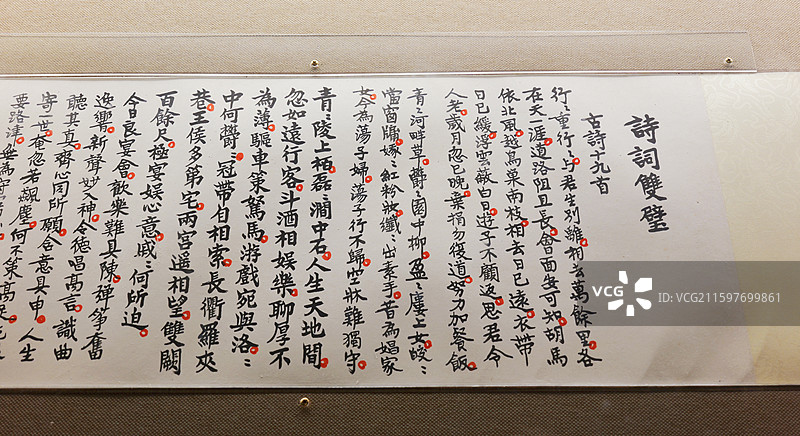 詩詞雙璧
古詩十九首
行〻重行〻與君生別離相去萬餘里各
在天一涯道路阻且長會面安可知胡馬
依北風越鳥巢南枝相去日已遠衣帶
日已緩浮雲蔽白日遊子不顧返思君令
人老歲月忽已晚棄捐勿復道努力加餐飯
青〻河畔草鬱〻園中柳盈〻樓上女皎〻
當窗牖娥〻紅粉妝纖〻出素手昔為娼家
女今為蕩子婦蕩子行不歸空牀難獨守
青〻陵上栢磊〻澗中石人生天地間
忽如遠行客斗酒相娛樂聊厚不
為薄驅車策駑馬游戲宛與洛〻
中何鬱〻冠帶自相索長衢羅夾
巷王侯多第宅兩宮遙相望雙闕
百餘尺極宴娛心意戚〻何所迫
今日良宴會歡樂難具陳彈箏奮
逸響新聲妙入神令德唱高言識曲
聽其真齊心同所願含意具申人生
寄一世奄忽若飆塵何不策高足
要路津無為守
VCG
VCG211597699861